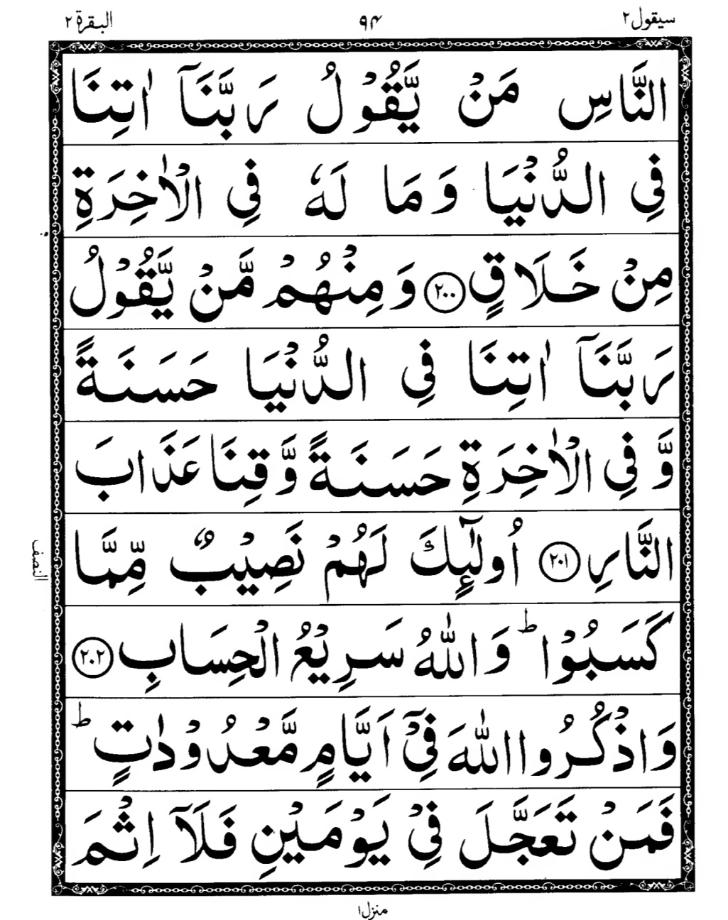 سيقول ٢ ٩٤ البقرة ٢
النَّاسِ مَنْ يَّقُوْلُ رَبَّنَآ اٰتِنَا
فِي الدُّنْيَا وَمَا لَهٗ فِي الْاٰخِرَةِ
مِنْ خَلَاقٍ ﴿٢٠٠﴾ وَمِنْهُمْ مَّنْ يَّقُوْلُ
رَبَّنَآ اٰتِنَا فِي الدُّنْيَا حَسَنَةً
وَّفِي الْاٰخِرَةِ حَسَنَةً وَّقِنَا عَذَابَ
النَّارِ ﴿٢٠١﴾ اُولٰٓئِكَ لَهُمْ نَصِيْبٌ مِّمَّا
النصف
كَسَبُوْا ؕ وَاللّٰهُ سَرِيْعُ الْحِسَابِ ﴿٢٠٢﴾
وَاذْكُرُوا اللّٰهَ فِيْٓ اَيَّامٍ مَّعْدُوْدٰتٍ ؕ
فَمَنْ تَعَجَّلَ فِيْ يَوْمَيْنِ فَلَآ اِثْمَ
منزل ١